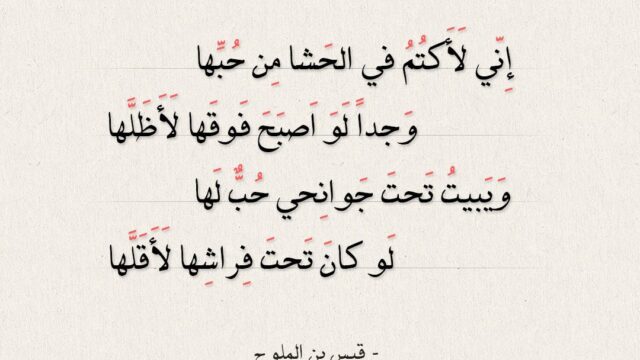 إِنّي لَأَكتُمُ في الحَشا مِن حُبِّها
وَجداً لَوَ اَصبَحَ فَوقَها لَأَظَلَّها
وَيَبيتُ تَحتَ جَوانِحي حُبٌّ لَها
لَو كانَ تَحتَ فِراشِها لَأَقَلَّها
- قيس بن الملوح